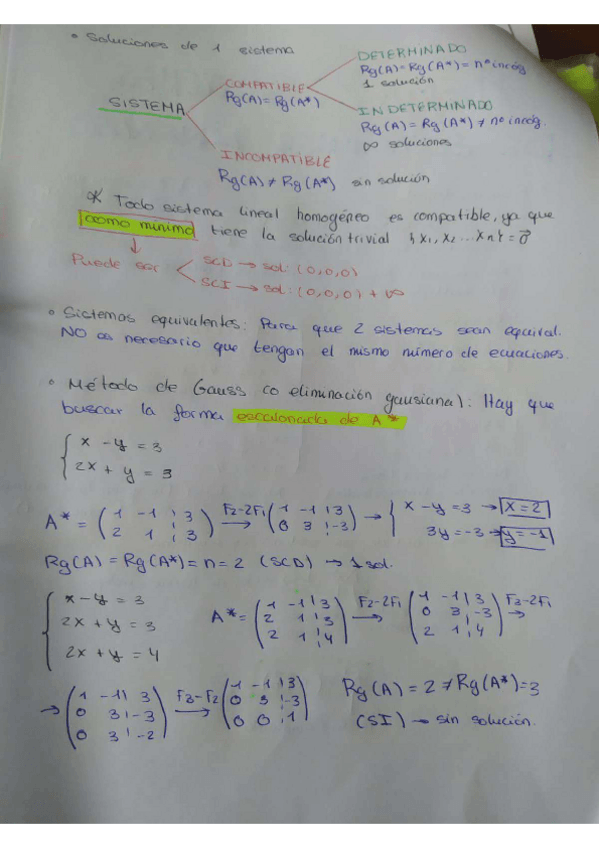 • Soluciones de 1 sistema
DETERMINADO
Rg(A) = Rg(A*) = nº incóg
1 solución
COMPATIBLE
Rg(A) = Rg(A*)
SISTEMA
INDETERMINADO
Rg(A) = Rg(A*) ≠ nº incóg.
∞ soluciones
INCOMPATIBLE
Rg(A) ≠ Rg(A*) sin solución
* Todo sistema lineal homogéneo es compatible, ya que
como mínimo tiene la solución trivial {x₁, x₂ ... xn} = 0⃗
↓
Puede ser < SCD → sol: (0,0,0)
SCI → sol: (0,0,0) + ∞
• Sistemas equivalentes: Para que 2 sistemas sean equival.
NO es necesario que tengan el mismo número de ecuaciones.
• Método de Gauss (o eliminación gausiana): Hay que
buscar la forma escalonada de A*
x - y = 3
2x + y = 3
A* = (1 -1 ¦ 3) F2-2F1 → (1 -1 ¦ 3) → { x - y = 3 → x = 2
(2 1 ¦ 3) (0 3 ¦ -3) 3y = -3 → y = -1
Rg(A) = Rg(A*) = n = 2 (SCD) → 1 sol.
x - y = 3 A* = (1 -1 ¦ 3) F2-2F1 → (1 -1 ¦ 3) F3-2F1 →
2x + y = 3 (2 1 ¦ 3) (0 3 ¦ -3)
2x + y = 4 (2 1 ¦ 4) (2 1 ¦ 4)
→ (1 -1 ¦ 3) F3-F2 → (1 -1 ¦ 3) Rg(A) = 2 ≠ Rg(A*) = 3
(0 3 ¦ -3) (0 3 ¦ -3) (SI) → sin solución.
(0 3 ¦ -2) (0 0 ¦ 1)